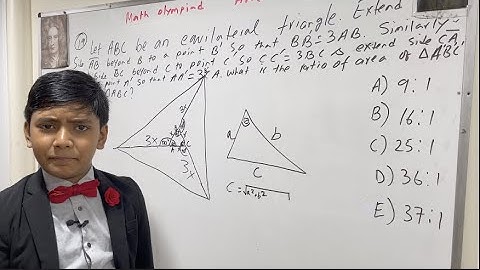 Math olympiad
19 Let ABC be an equilateral triangle. Extend
side AB beyond B to a point B' so that BB'=3AB. Similarly,
side BC beyond C to point C' so CC'=3BC & extend side CA
point A' so that AA'=3 A. what is the ratio of area of ΔA'B'C'
ΔABC?
A) 9:1
B) 16:1
C) 25:1
D) 36:1
E) 37:1
3x
3x
a
b
c